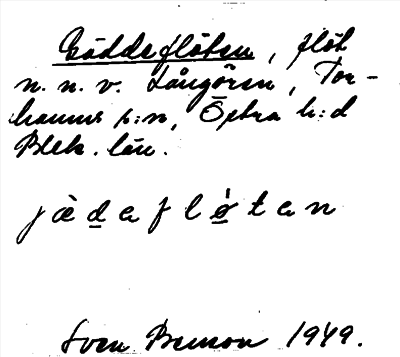 Gäddeflöten, flöt
n.n.v. Långören, Tor-
hamns s:n, Östra h:d
Blek. län.
jä̀d̲aflø̀tan
Sven Benson 1949.